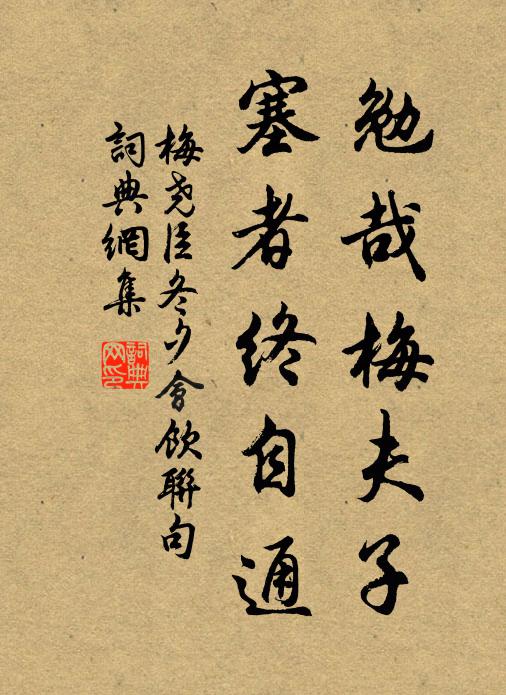 勉哉梅夫子
塞者終自通
梅尧臣冬夕會飲聯句
詞典網集
詞典网印